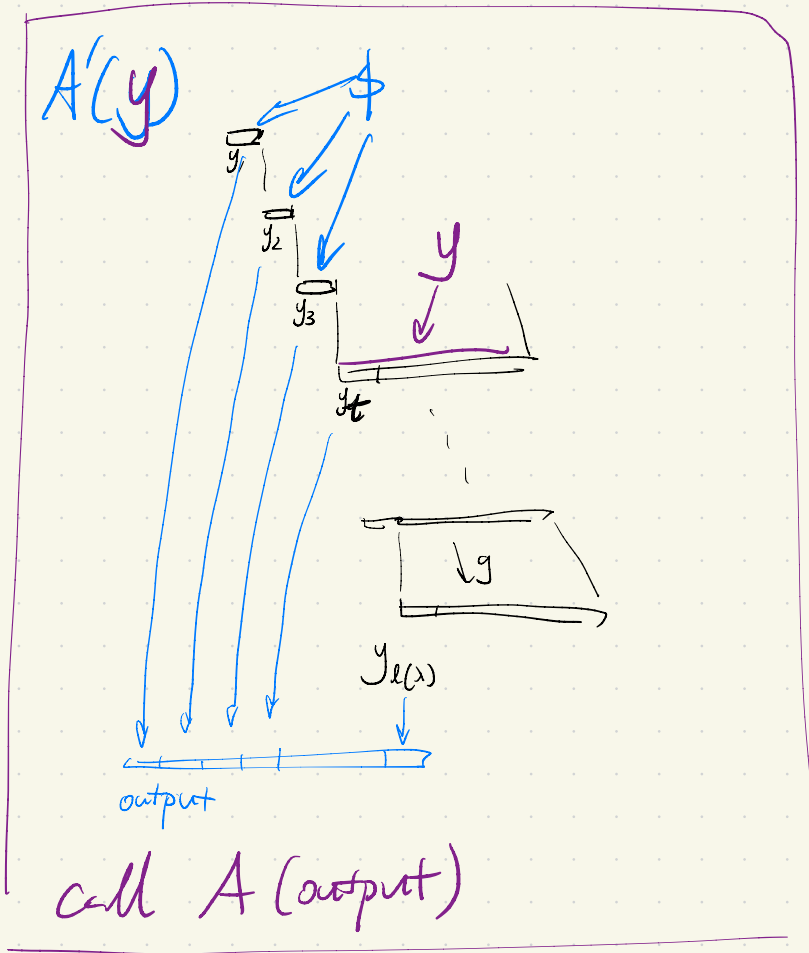 A'(y)
$
y
y₂
y₃
y
yₜ
g
y_{ℓ(λ)}
output
call A (output)